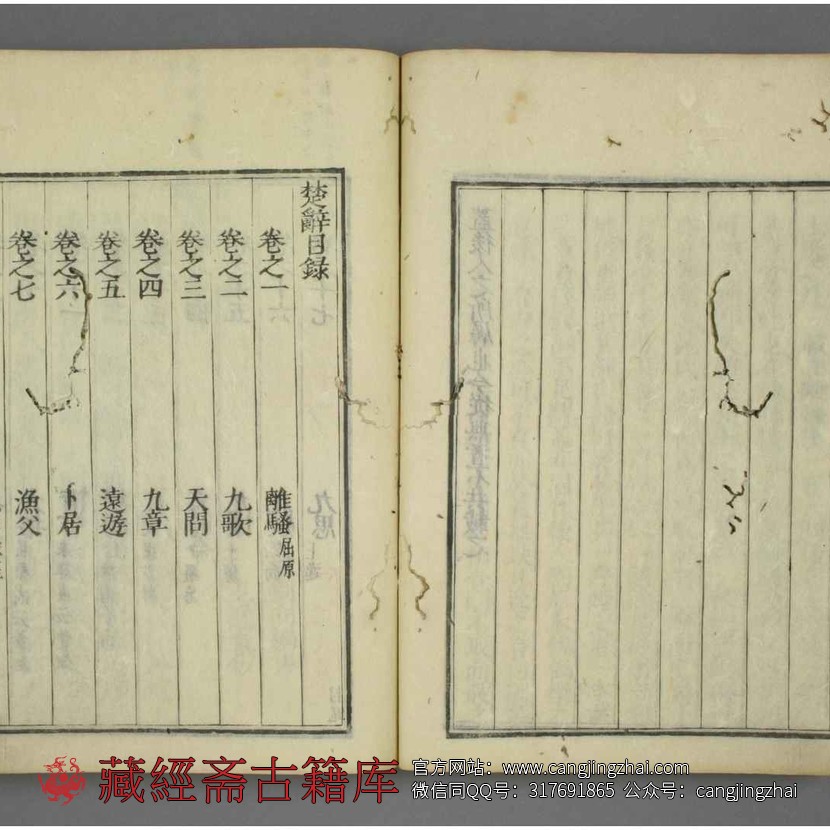 楚辭目録
卷之一 離騷屈原
卷之二 九歌
卷之三 天問
卷之四 九章
卷之五 遠遊
卷之六 卜居
卷之七 漁父
藏經斋古籍库
官方网站：www.cangjingzhai.com
微信同QQ号：317691865 公众号：cangjingzhai